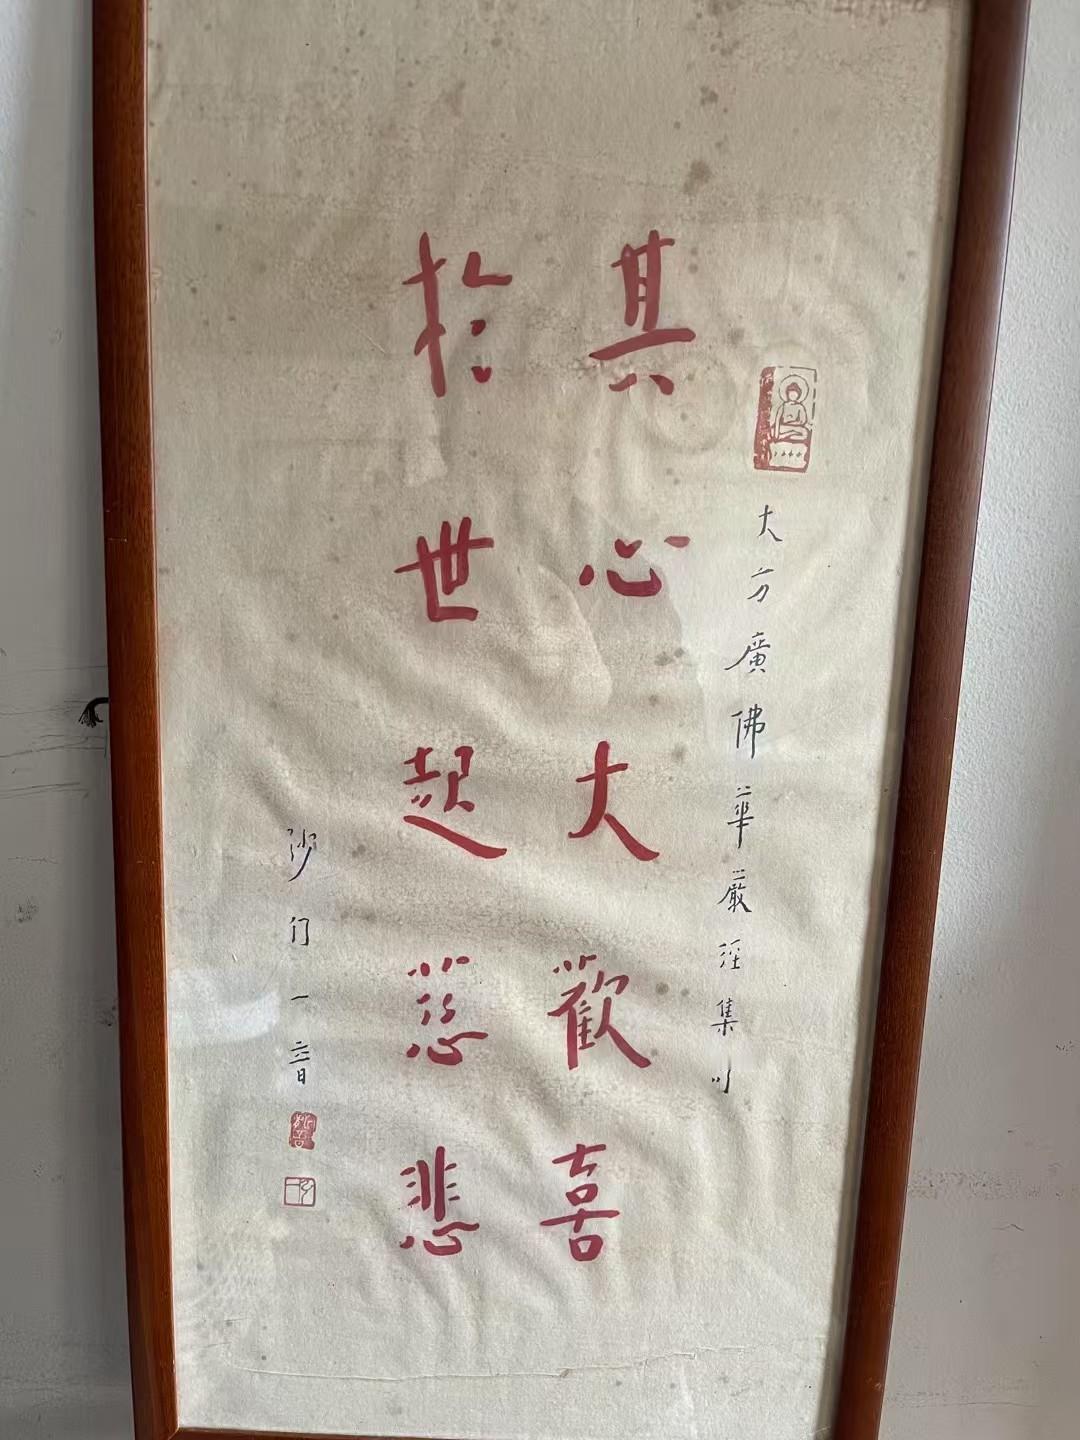 大方廣佛華嚴經集句
其心大歡喜
於世起慈悲
沙门一音